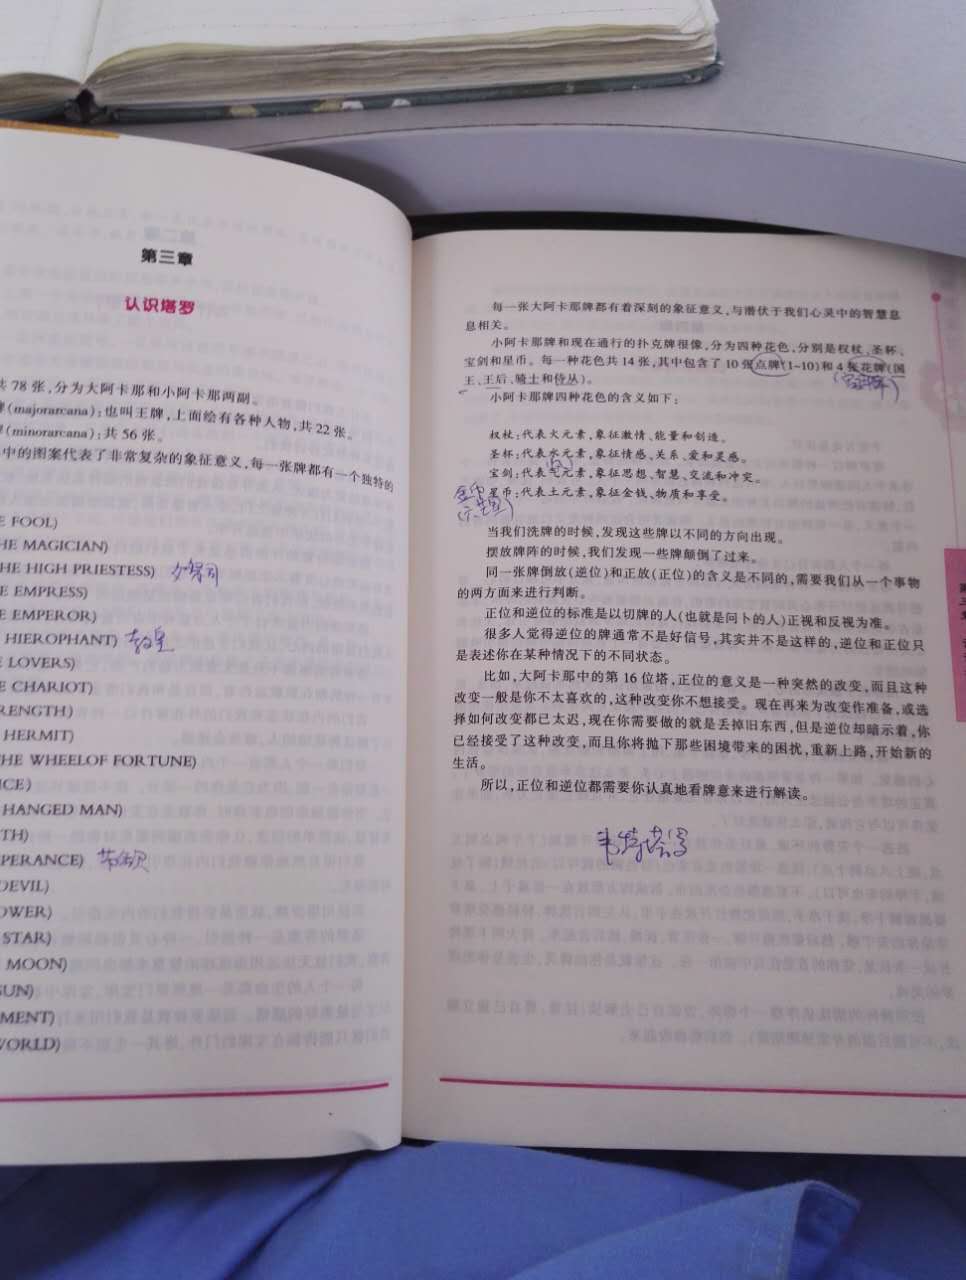 第三章
认识塔罗
共 78 张，分为大阿卡那和小阿卡那两副。
牌(majorarcana)：也叫王牌，上面绘有各种人物，共 22 张。
(minorarcana)：共 56 张。
中的图案代表了非常复杂的象征意义，每一张牌都有一个独特的
E FOOL)
HE MAGICIAN)
HE HIGH PRIESTESS)
E EMPRESS)
E EMPEROR)
HIEROPHANT) 教皇
E LOVERS)
E CHARIOT)
RENGTH)
HERMIT)
THE WHEELOF FORTUNE)
ICE)
HANGED MAN)
TH)
PERANCE)
DEVIL)
OWER)
STAR)
MOON)
SUN)
MENT)
WORLD)
每一张大阿卡那牌都有着深刻的象征意义，与潜伏于我们心灵中的智慧息
息相关。
小阿卡那牌和现在通行的扑克牌很像，分为四种花色，分别是权杖、圣杯、
宝剑和星币。每一种花色共 14 张，其中包含了 10 张点牌(1~10)和 4 张花牌(国
王、王后、骑士和侍丛)。
(宫廷牌)
小阿卡那牌四种花色的含义如下：
权杖：代表火元素，象征激情、能量和创造。
圣杯：代表水元素，象征情感、关系、爱和灵感。
(风)
宝剑：代表气元素，象征思想、智慧、交流和冲突。
金币
星币：代表土元素，象征金钱、物质和享受。
当我们洗牌的时候，发现这些牌以不同的方向出现。
摆放牌阵的时候，我们发现一些牌颠倒了过来。
同一张牌倒放(逆位)和正放(正位)的含义是不同的，需要我们从一个事物
的两方面来进行判断。
正位和逆位的标准是以切牌的人(也就是问卜的人)正视和反视为准。
很多人觉得逆位的牌通常不是好信号，其实并不是这样的，逆位和正位只
是表述你在某种情况下的不同状态。
比如，大阿卡那中的第 16 位塔，正位的意义是一种突然的改变，而且这种
改变一般是你不太喜欢的，这种改变你不想接受。现在再来为改变作准备，或选
择如何改变都已太迟，现在你需要做的就是丢掉旧东西，但是逆位却暗示着，你
已经接受了这种改变，而且你将抛下那些困境带来的困扰，重新上路，开始新的
生活。
所以，正位和逆位都需要你认真地看牌意来进行解读。
韦特塔罗